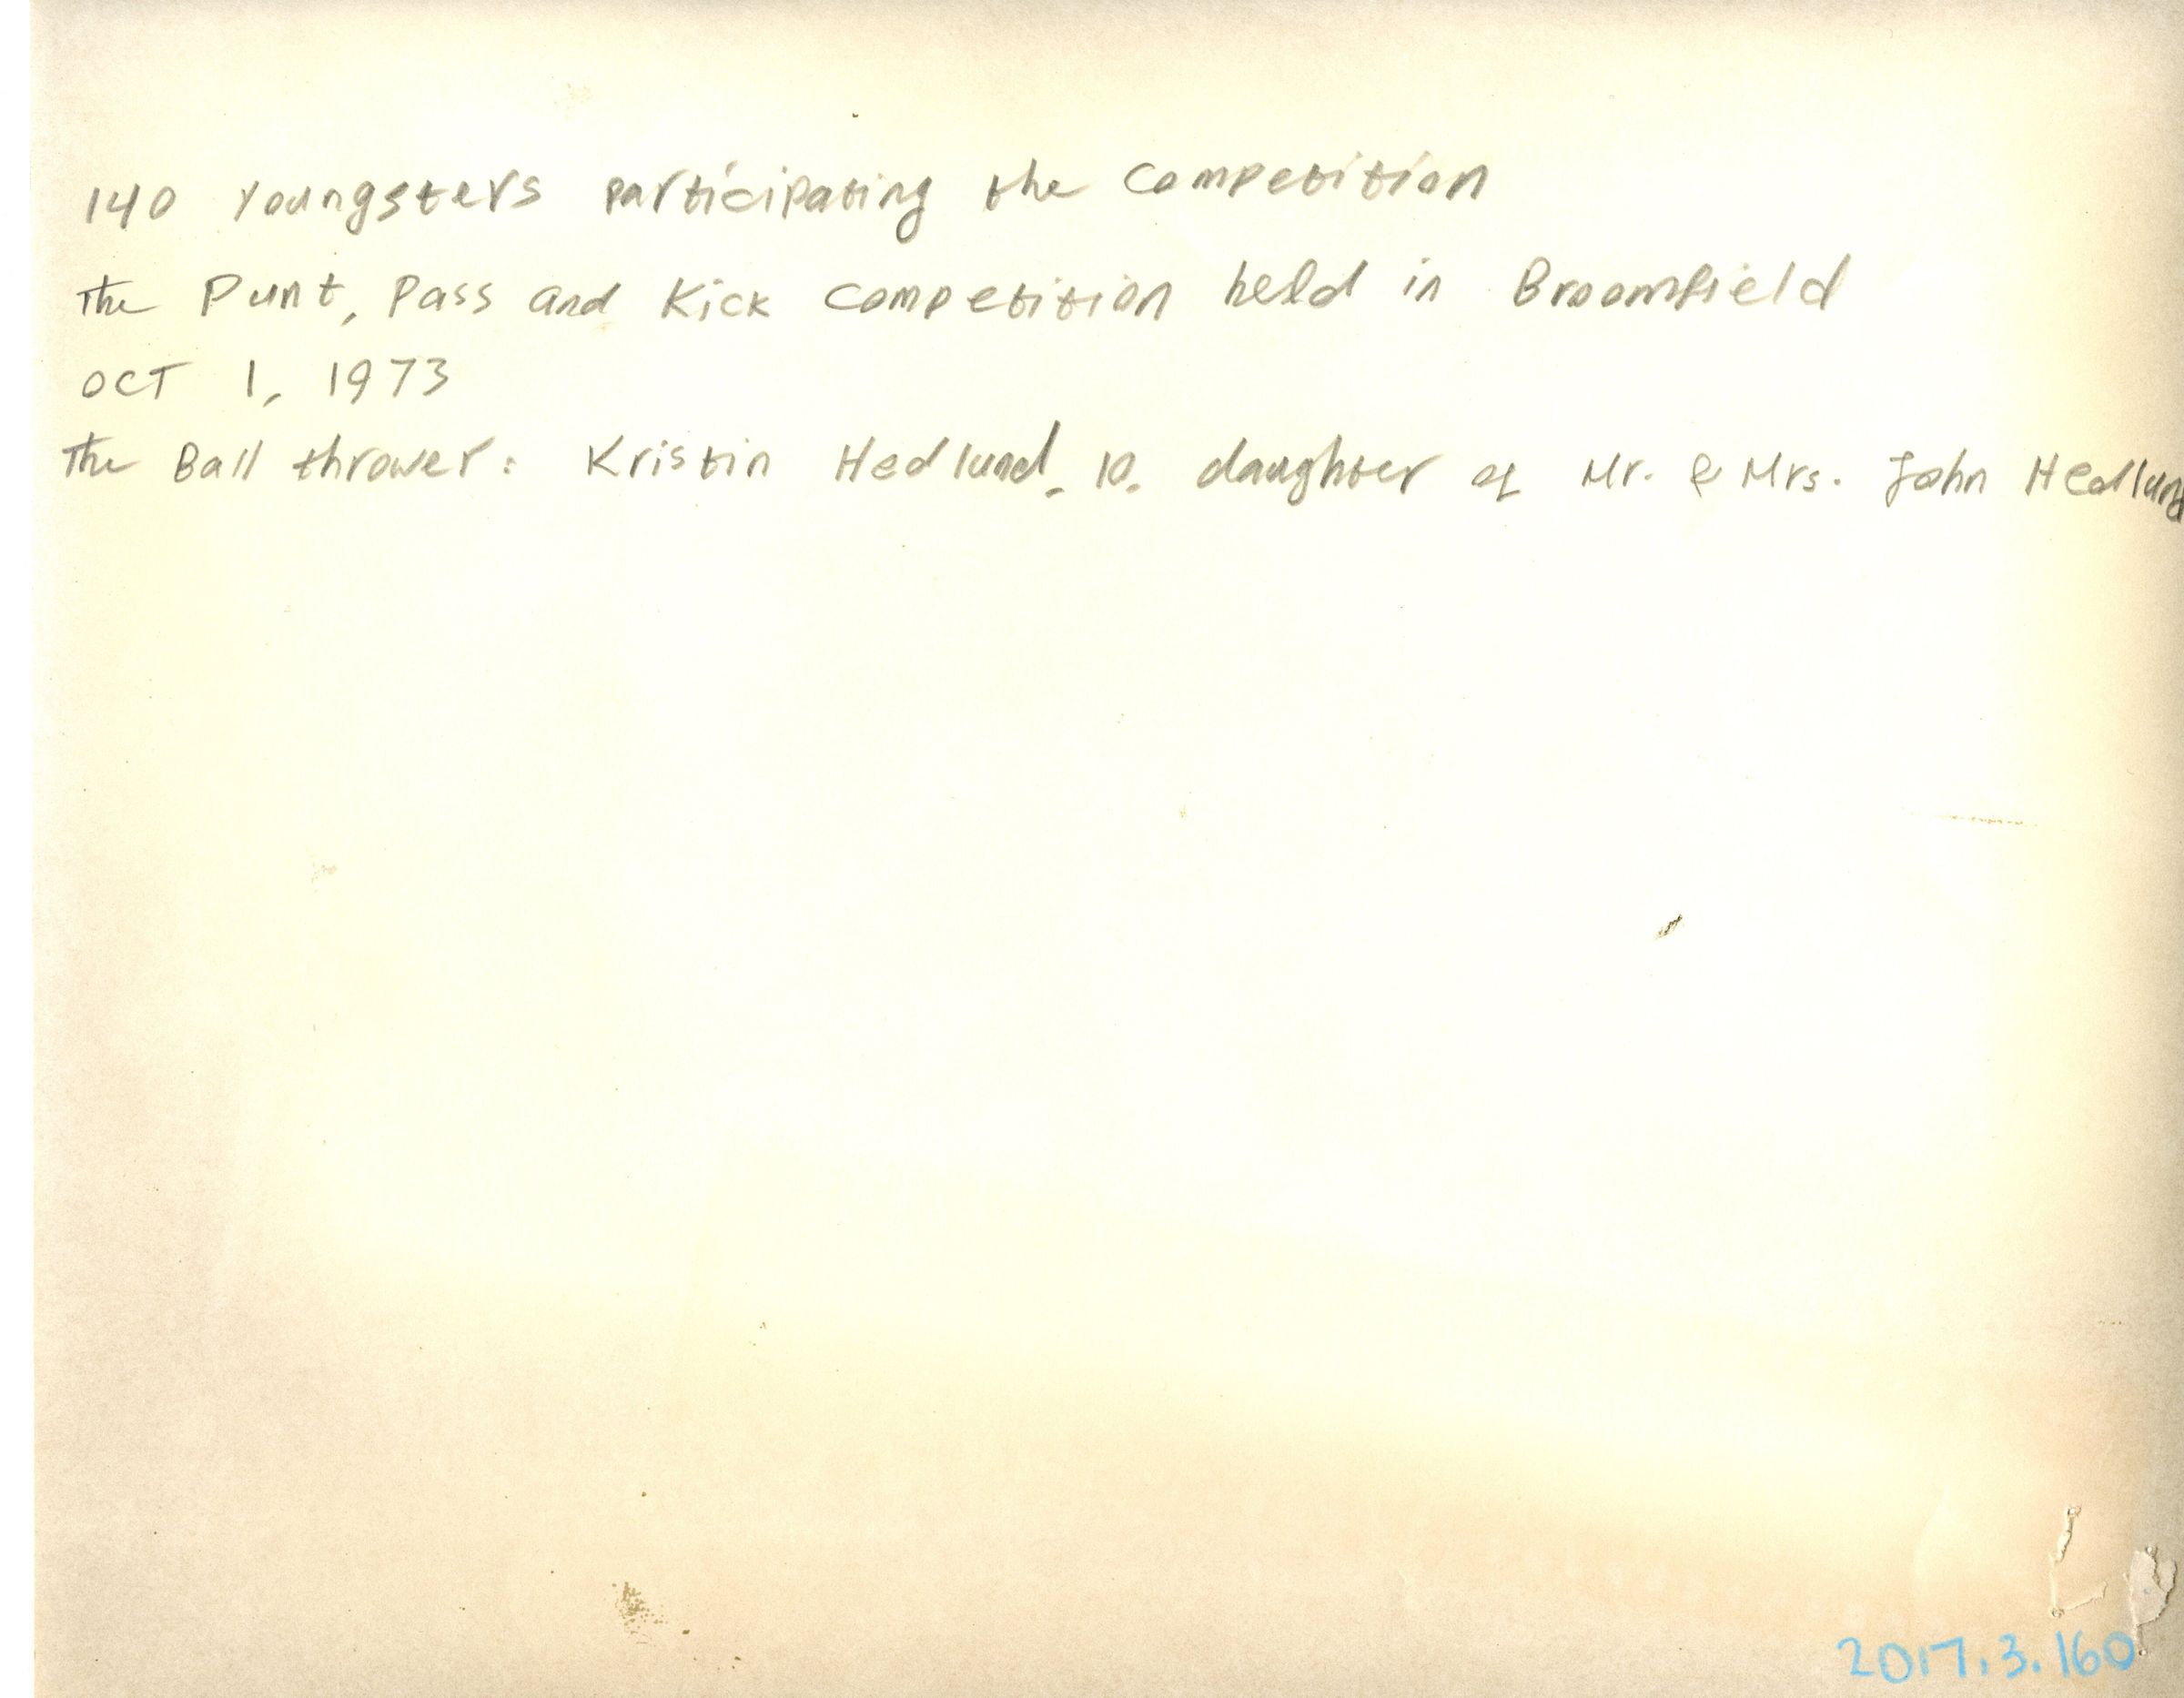 140 Youngsters participating the Competition
The Punt, Pass and Kick Competition held in Broomfield
OCT 1, 1973
The Ball thrower: Kristin Hedlund, 10, daughter of Mr. & Mrs. John Hedlund
2017.3.160